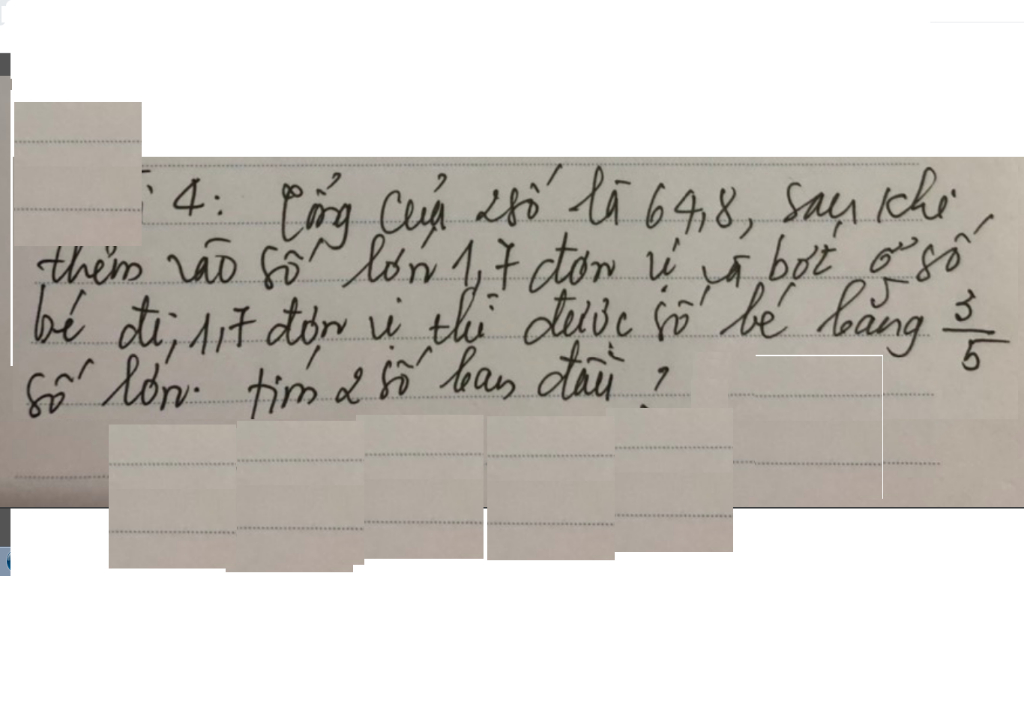 4: Tổng của 2 số là 64,8, sau khi
thêm vào số lớn 1,7 đơn vị và bớt ở số
bé đi, 1,7 đơn vị thì được số bé bằng 3/5
số lớn. tìm 2 số ban đầu?